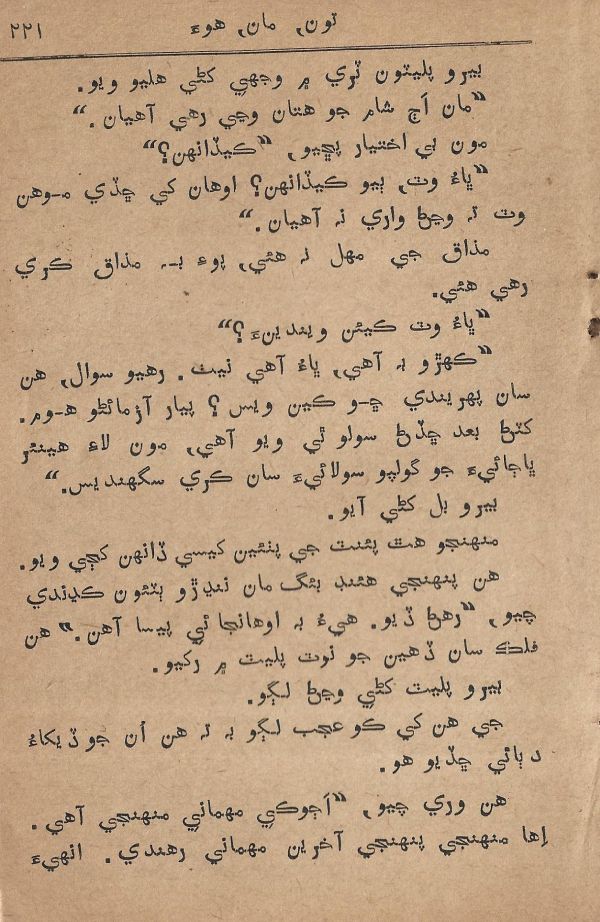 تون، مان، هوءَ ٢٢١
بيرو پليٽون ٽري ۾ وجهي کڻي هليو ويو.
”مان اَڄ شام جو هتان وڃي رهي آهيان.“
مون بي اختيار پڇيو، ”ڪيڏانهن؟“
”ڀاءُ وٽ، ٻيو ڪيڏانهن؟ اوهان کي ڇڏي مـوهن
وٽ تہ وڃڻ واري نہ آهيان.“
مذاق جي مهل نہ هئي، پوءِ بـہ مذاق ڪري
رهي هئي.
”ڀاءُ وٽ ڪيئن ويندينءَ؟“
”ڪهڙو بہ آهي، ڀاءُ آهي نيٺ. رهيو سوال، هن
سان پهريندي ڇـو ڪين ويس؟ پيار آزمائڻو هـوم.
کٽڻ بعد ڇڏڻ سولو ٿي ويو آهي، مون لاءِ هينئر
ڀاڄائيءَ جو گولپو سولائيءَ سان ڪري سگهنديس.“
بيرو بل کڻي آيو.
منهنجو هٿ پئنٽ جي پٺئين کيسي ڏانهن کڄي ويو.
هن پنهنجي هئنڊ بئگ مان ننڍڙو ٻٽئون ڪڍندي
چيو، ”رهڻ ڏيو. هيءُ بہ اوهانجا ئي پيسا آهن.“ هن
فلڪ سان ڏهين جو نوٽ پليٽ ۾ رکيو.
بيرو پليٽ کڻي وڃڻ لڳو.
جي هن کي ڪو عجب لڳو بہ تہ هن اُن جو ڏيکاءُ
دٻائي ڇڏيو هو.
هن وري چيو، ”اَڄوڪي مهماني منهنجي آهي.
اِها منهنجي پنهنجي آخرين مهماني رهندي. انهيءَ